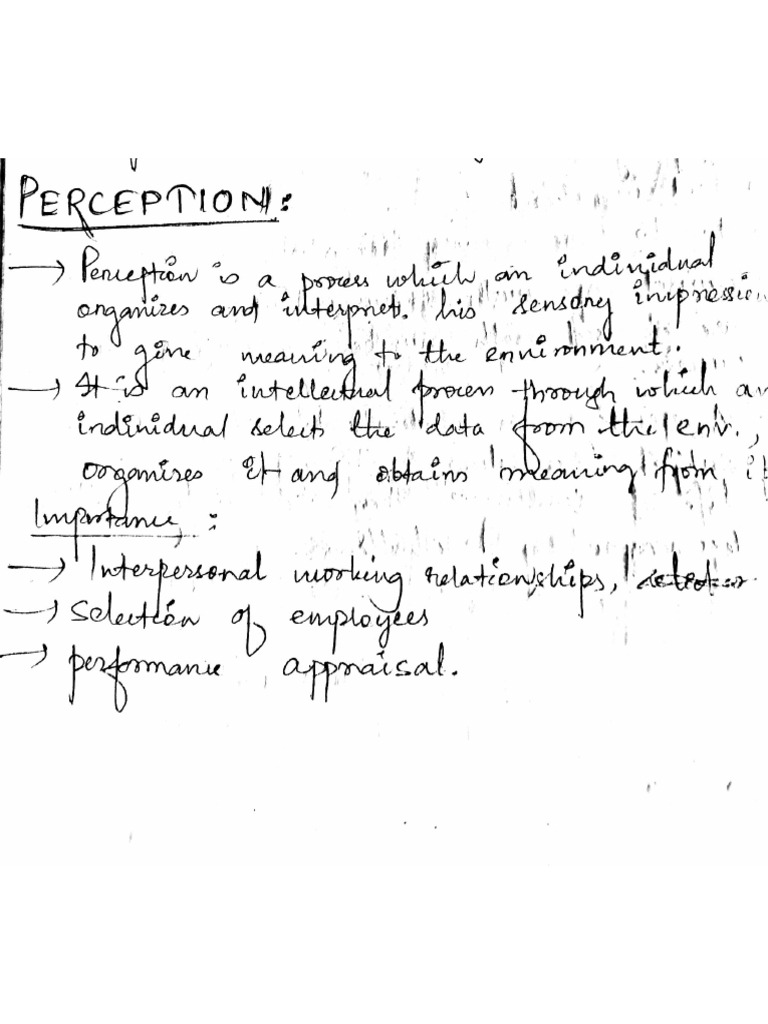 PERCEPTION:
→ Perception is a process which an individual
organizes and interpret. his sensory impressio
to give meaning to the environment.
→ It is an intellectual process through which an
individual selects the data from the env.,
organises it and obtains meaning from it
Importance :
→ Interpersonal working relationships,
→ Selection of employees
→ performance appraisal.